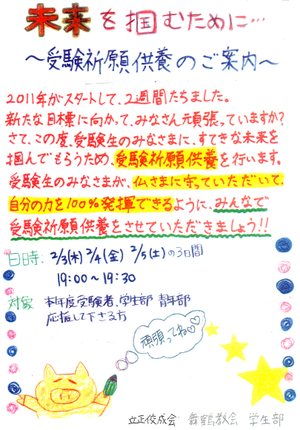 未来を掴むために…
～受験祈願供養のご案内～
2011年がスタートして、2週間たちました。
新たな目標に向かって、みなさん頑張っていますか?
さて、この度、受験生のみなさまに、すてきな未来を
掴んでもらうため、受験祈願供養を行います。
受験生のみなさまが、仏さまに守っていただいて、
自分の力を100%発揮できるように、みんなで
受験祈願供養をさせていただきましょう!!
日時: 2/3(木) 2/4(金) 2/5(土)の3日間
19:00～19:30
対象: 本年度受験者、学生部 青年部
応援して下さる方
頑張ってね♡
立正佼成会 舞鶴教会 学生部